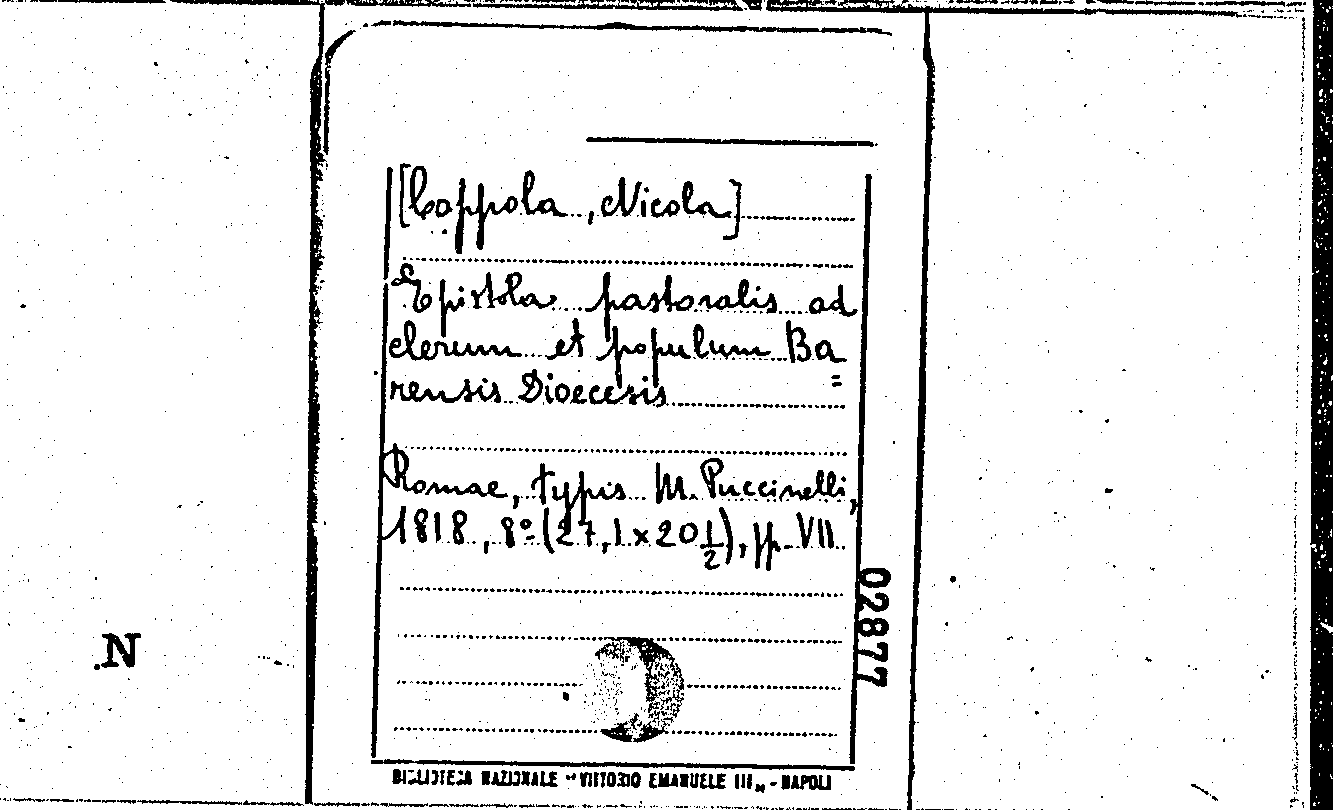 [Coppola, Nicola]
Epistola pastoralis ad
clerum et populum Ba=
rensis Dioecesis
Romae, typis M. Puccinelli,
1818, 8º (27,1 x 20 1/2), pp. VII
02877
N
BIBLIOTECA NAZIONALE "VITTORIO EMANUELE III„ - NAPOLI